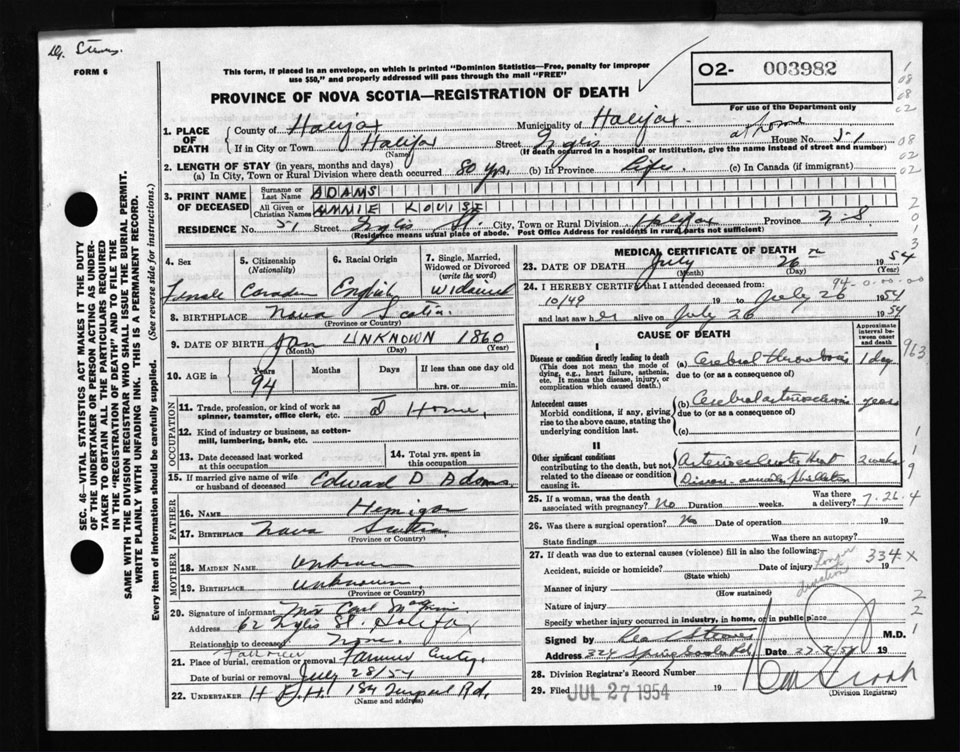 FORM 6
This form, if placed in an envelope, on which is printed "Dominion Statistics—Free, penalty for improper
use $50," and properly addressed will pass through the mail "FREE"
PROVINCE OF NOVA SCOTIA—REGISTRATION OF DEATH
02- 003982
For use of the Department only
1. PLACE OF DEATH
County of Halifax
Municipality of Halifax
If in City or Town Halifax (Name) Street Inglis House No. 51
at home
(If death occurred in a hospital or institution, give the name instead of street and number)
2. LENGTH OF STAY (in years, months and days)
(a) In City, Town or Rural Division where death occurred 80 yrs. (b) In Province Life. (c) In Canada (if immigrant)
3. PRINT NAME OF DECEASED
Surname or Last Name ADAMS
All Given or Christian Names ANNIE LOUISE
RESIDENCE No. 51 Street Inglis St. City, Town or Rural Division Halifax Province N.S
(Residence means usual place of abode. Post Office Address for residents in rural parts not sufficient)
4. Sex Female
5. Citizenship (Nationality)
6. Racial Origin English
7. Single, Married, Widowed or Divorced (write the word) Widowed
8. BIRTHPLACE Nova Scotia
(Province or Country)
9. DATE OF BIRTH Jan UNKNOWN 1860
(Month) (Day) (Year)
10. AGE in Years Months Days If less than one day old
94 hrs. or min.
OCCUPATION
11. Trade, profession, or kind of work as spinner, teamster, office clerk, etc. At Home.
12. Kind of industry or business, as cotton-mill, lumbering, bank, etc.
13. Date deceased last worked at this occupation
14. Total yrs. spent in this occupation
15. If married give name of wife or husband of deceased Edward D Adams.
FATHER
16. Name
17. Birthplace Nova Scotia
(Province or Country)
MOTHER
18. Maiden Name Unknown
19. Birthplace Unknown.
(Province or Country)
20. Signature of informant Mrs Carl
Address 62 Inglis St. Halifax
Relationship to deceased None.
21. Place of burial, cremation or removal
Date of burial or removal July 28/54
22. Undertaker
(Name and address)
MEDICAL CERTIFICATE OF DEATH
23. DATE OF DEATH July 26th 1954
(Month) (Day) (Year)
24. I HEREBY CERTIFY that I attended deceased from:
10/49 19 to July 26 1954
and last saw her alive on July 26 1954
94-0-00-00
CAUSE OF DEATH
Approximate interval between onset and death
I
Disease or condition directly leading to death
(This does not mean the mode of dying, e.g., heart failure, asthenia, etc. It means the disease, injury, or complication which caused death.)
(a) Cerebral thrombosis 1 day
due to (or as a consequence of)
Antecedent causes
Morbid conditions, if any, giving rise to the above cause, stating the underlying condition last.
(b) Cerebral arteriosclerosis years
due to (or as a consequence of)
(c)
II
Other significant conditions
contributing to the death, but not related to the disease or condition causing it.
2 weeks
25. If a woman, was the death associated with pregnancy? No Duration weeks. Was there a delivery?
7-26-4
26. Was there a surgical operation? No Date of operation 19
State findings Was there an autopsy?
27. If death was due to external causes (violence) fill in also the following:
Accident, suicide or homicide? (State which) Date of injury 19
334X
Manner of injury
(How sustained)
Nature of injury
Specify whether injury occurred in industry, in home, or in public place
Signed by M.D.
Address 324 Spring Garden Rd. Date 19
28. Division Registrar's Record Number
29. Filed JUL 27 1954 19
(Division Registrar)
SEC. 46—VITAL STATISTICS ACT MAKES IT THE DUTY
OF THE UNDERTAKER OR PERSON ACTING AS UNDER-
TAKER TO OBTAIN ALL THE PARTICULARS REQUIRED
IN THE "REGISTRATION OF DEATH" AND TO FILE THE
SAME WITH THE DIVISION REGISTRAR WHO SHALL ISSUE THE BURIAL PERMIT.
WRITE PLAINLY WITH UNFADING INK. THIS IS A PERMANENT RECORD.
Every item of information should be carefully supplied. (See reverse side for instructions.)